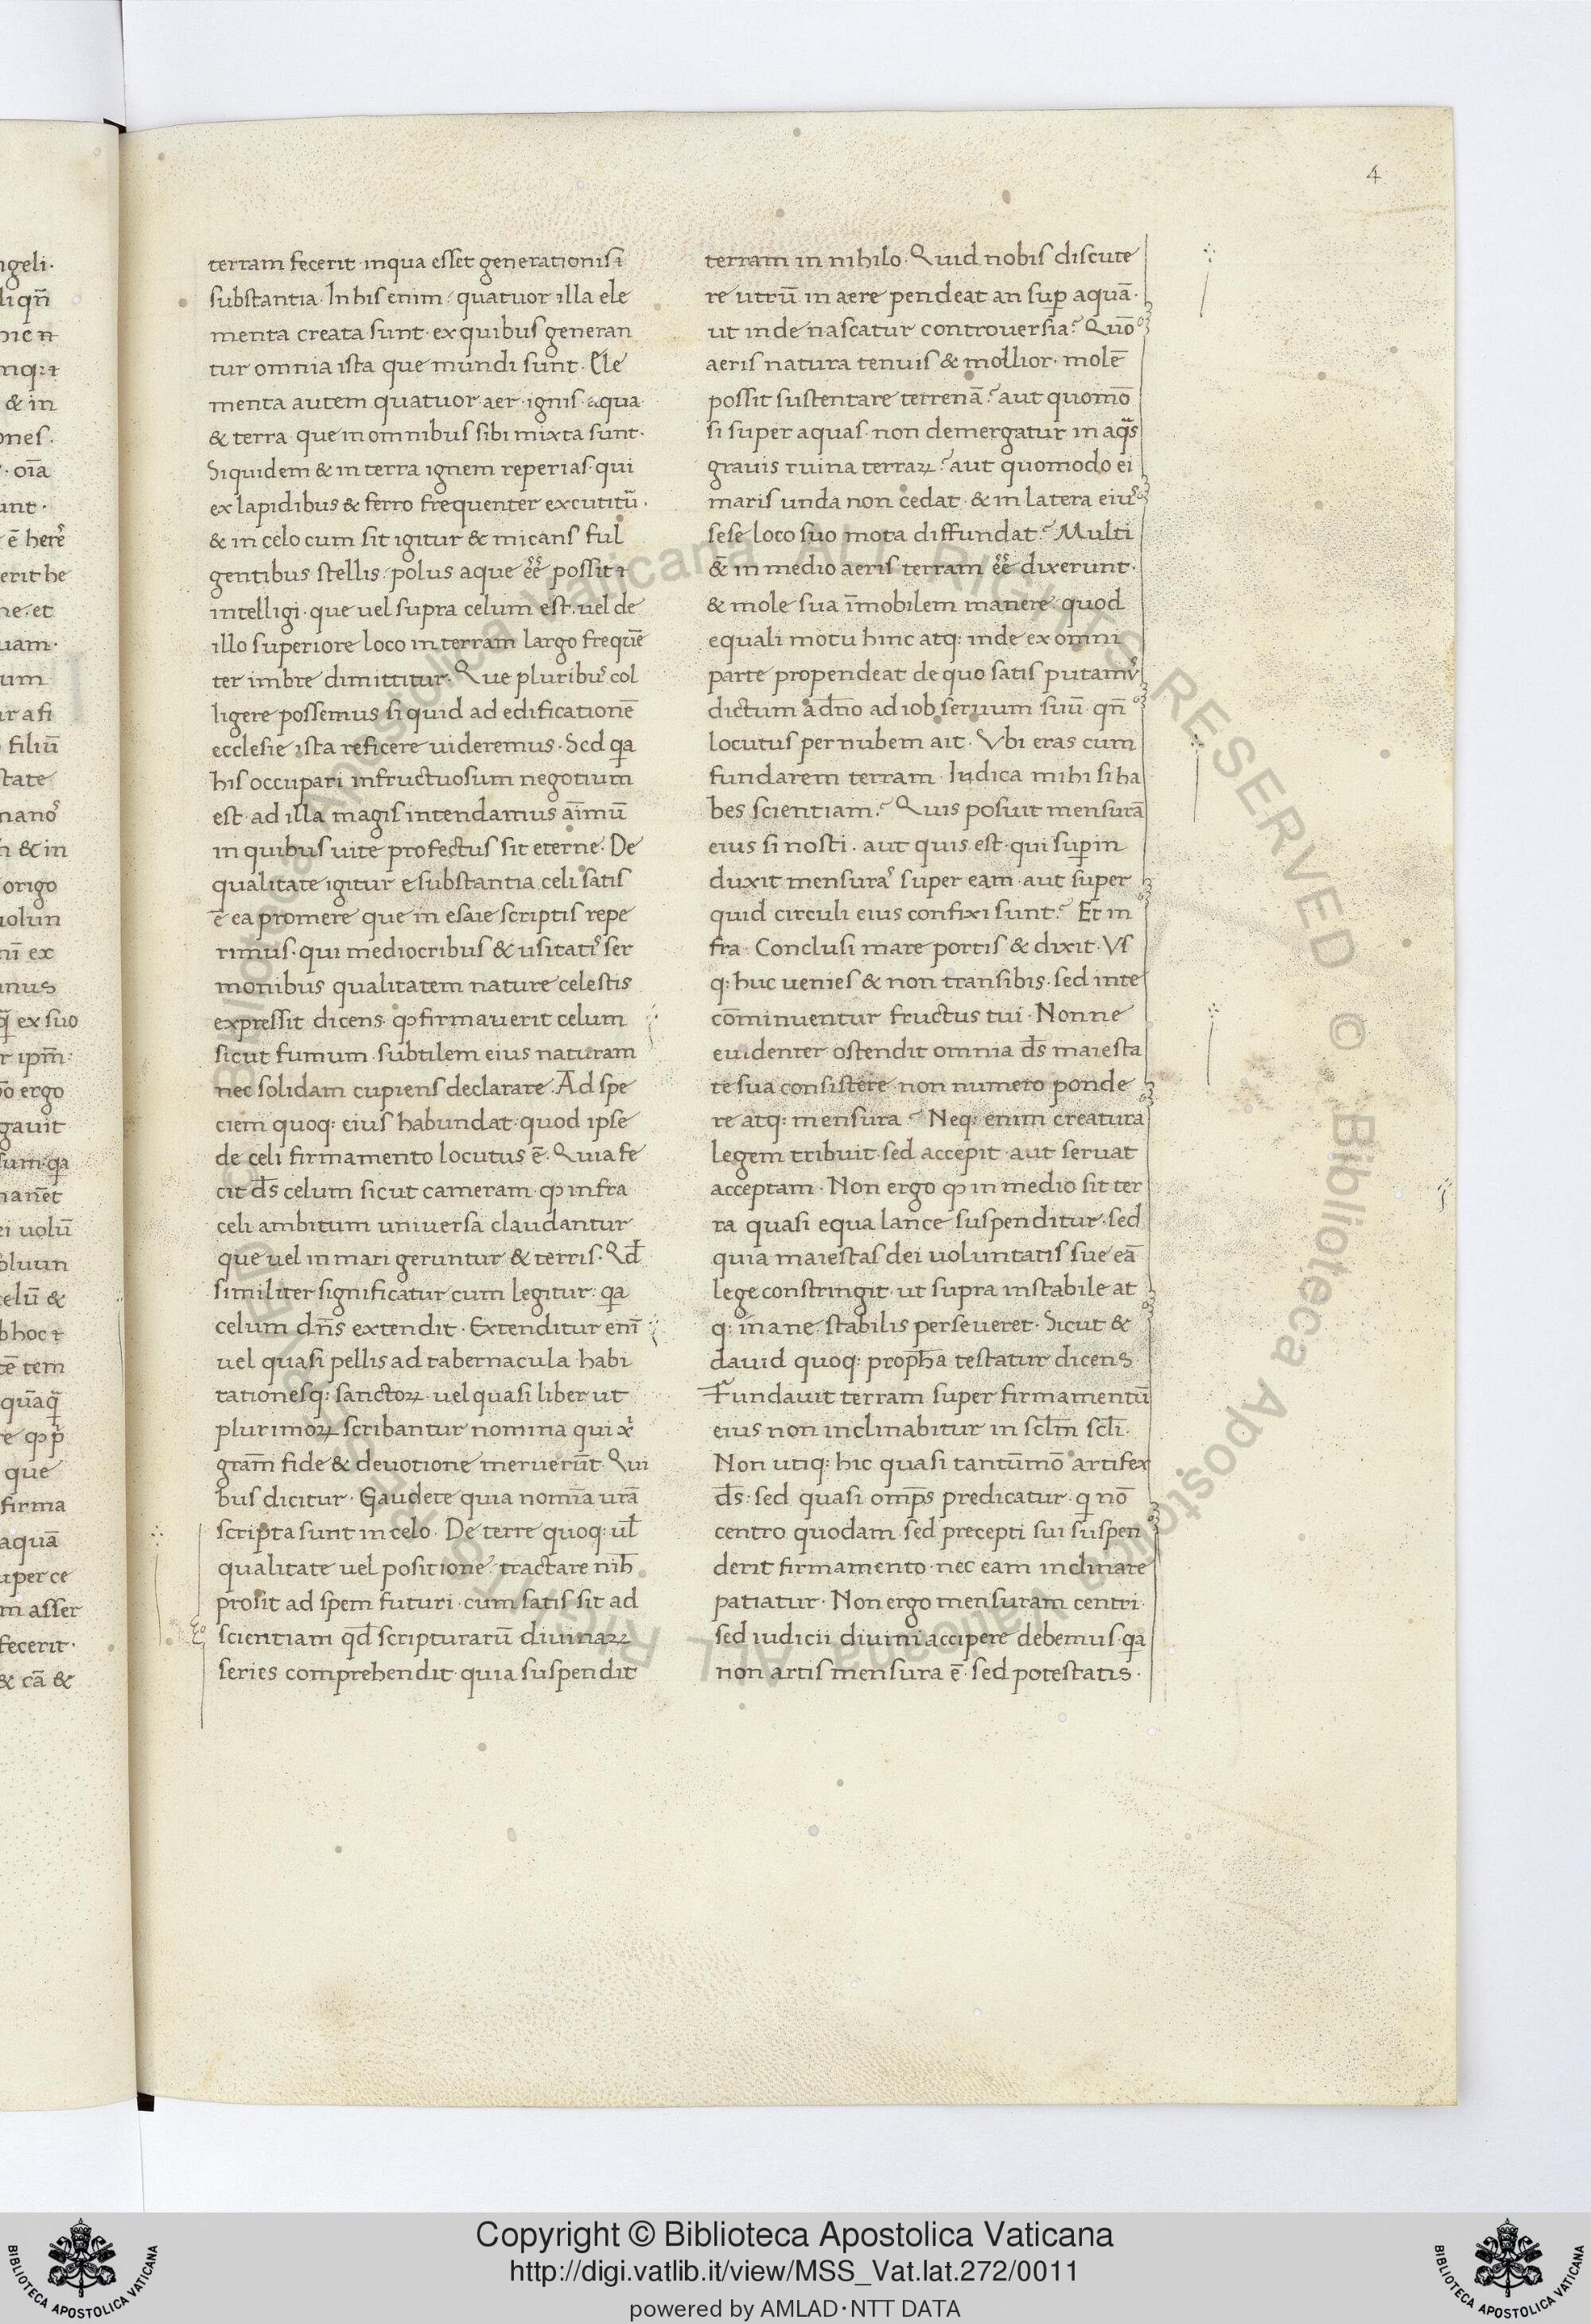 4
terram fecerit· inqua esset generationis i
substantia· In his enim· quatuor illa ele
menta creata sunt· ex quibus generan
tur omnia ista que mundi sunt· Ele
menta autem quatuor· aer· ignis· aqua
& terra· que in omnibus sibi mixta sunt·
Siquidem & in terra ignem reperias· qui
ex lapidibus & ferro frequenter excutit᷑·
& in celo cum sit igitur & micans ful
gentibus stellis· polus aque ee᷑ possit ⁊
intelligi· que uel supra celum est· uel de
illo superiore loco in terram largo frequē
ter imbre dimittitur· Que pluribꝰ col
ligere possemus si quid ad edificationē
ecclesie ista reficere uideremus· Sed qa
his occupari infructuosum negotium
est· ad illa magis intendamus aīmū
in quibus uite profectus sit eterne· De
qualitate igitur e substantia celi satis
ē ea promere que in esaie scriptis repe
rimus· qui mediocribus & usitatiˢ ser
monibus qualitatem nature celestis
expressit dicens· ꝙ firmauerit celum
sicut fumum· subtilem eius naturam
nec solidam cupiens declarare· Ad spe
ciem quoq: eius habundat· quod ipse
de celi firmamento locutus ē· Quia fe
cit ds̄ celum sicut cameram· ꝙ infra
celi ambitum uniuersa claudantur
que uel in mari geruntur & terris· Qd̄
similiter significatur cum legitur· qa
celum dn̄s extendit· Extenditur enī
uel quasi pellis ad tabernacula habi
tationesq: sanctoꝝ· uel quasi liber ut
plurimoꝝ scribantur nomina qui xp̄i
gram̄ fide & deuotione meruerūt· Qui
bus dicitur· Gaudete quia nomīa urā
scripta sunt in celo· De terre quoq: ul̄
qualitate uel positione· tractare nih̄
prosit ad spem futuri· cum satis sit ad
scientiam qd̄ scripturarū diuinaꝝ
series comprehendit· quia suspendit
terram in nihilo· Quid nobis discute
re utrū in aere pendeat an suꝑ aquā·
ut inde nascatur controuersia? Quō
aeris natura tenuis & mollior· molē
possit sustentare terrenā? aut quomō
si super aquas· non demergatur in aqᵃs
grauis ruina terraꝝ? aut quomodo ei
maris unda non cedat· & in latera eiuˢ
sese loco suo mota diffundat? Multi
& in medio aeris terram ee᷑ dixerunt·
& mole sua īmobilem manere· quod
equali motu hinc atq: inde ex omni
parte propendeat· de quo satis putamꝰ
dictum a dn̄o ad iob seruum suū· qn̄
locutus per nubem ait· Vbi eras cum
fundarem terram· Iudica mihi si ha
bes scientiam? Quis posuit mensurā
eius si nosti· aut quis est· qui suꝑ in
duxit mensuraˢ super eam· aut super
quid circuli eius confixi sunt? Et in
fra· Conclusi mare portis & dixit· Vs
q: huc uenies & non transibis· sed inte
cōminuentur fructus tui· Nonne
euidenter ostendit omnia ds̄ maiesta
te sua consistere· non numero ponde
re atq: mensura? Neq: enim creatura
legem tribuit· sed accepit· aut seruat
acceptam· Non ergo ꝙ in medio sit ter
ra quasi equa lance suspenditur· sed
quia maiestas dei uoluntatis sue eā
lege constringit· ut supra instabile at
q: inane· stabilis perseueret· Sicut &
dauid quoq: proph̄a testatur dicens·
Fundauit terram super firmamentū
eius non inclinabitur in scl̄m scl̄i·
Non utiq: hic quasi tantūmō artifex
ds̄: sed quasi omp̄s predicatur· q nō
centro quodam· sed precepti sui suspen
derit firmamento· nec eam inclinare
patiatur· Non ergo mensuram centri·
sed iudicii diuini accipere debemus· qa
non artis mensura ē· sed potestatis·
Copyright © Biblioteca Apostolica Vaticana
http://digi.vatlib.it/view/MSS_Vat.lat.272/0011
powered by AMLAD·NTT DATA